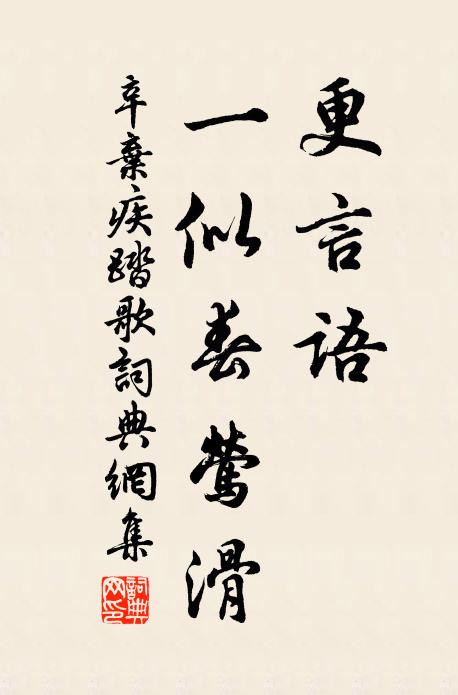 更言語
一似春鶯滑
辛棄疾踏歌詞典網集
詞典網印